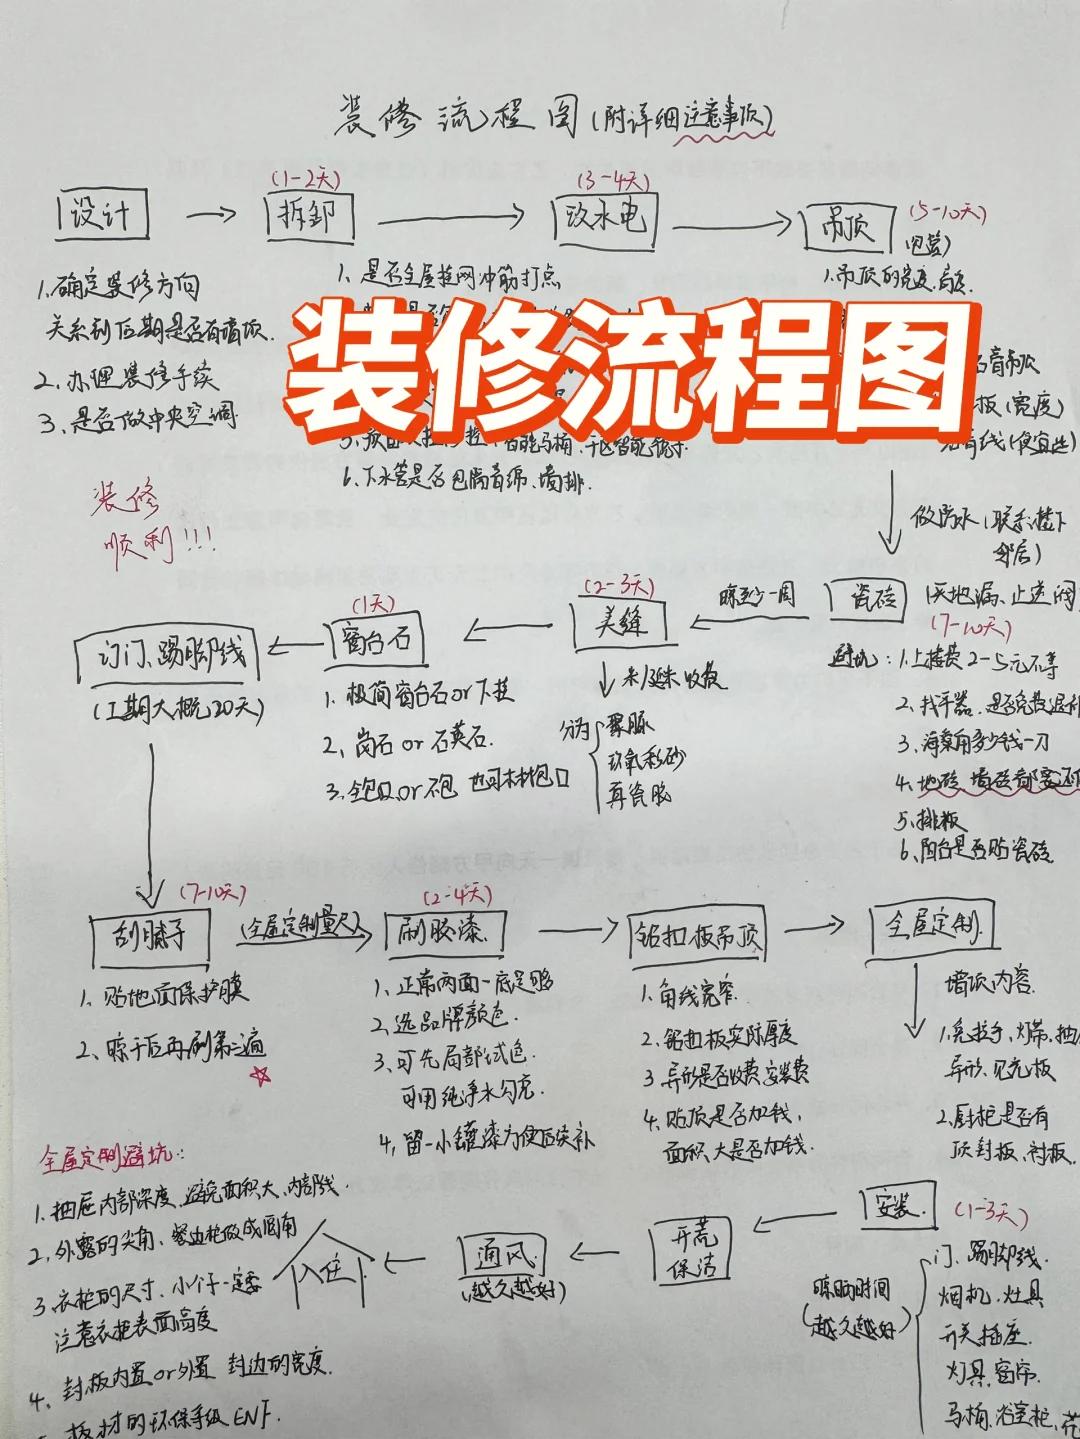 装修流程图(附详细注意事项)
设计
(1-2天)
拆卸
(3-4天)
改水电
吊顶
(5-10天)
1.确定装修方向
关系到后期是否有增项.
2.办理装修手续
3.是否做中央空调
1、是否全屋挂网冲筋打点
6、下水管是否包隔音绵、墙排.
1.吊顶的宽度.高度.
板(宽度)
装修流程图
装修
顺利!!!
做防水(联系楼下
邻居)
瓷砖
(7-10天)
避坑:1.上楼费2-5元不等
2、找平器.是否免费退补
3.海棠角多少钱一刀
4.地砖、墙砖都要还
5、排板
6、阳台是否贴瓷砖
晾至少一周
(2-3天)
美缝
米/延米收费
分为
聚脲
环氧彩砂
真瓷胶
(1天)
窗台石
1.极简窗台石or下挂
2、岗石or石英石.
3.全包口or不包 也可木材包口
订门、踢脚线
(工期大概20天)
(7-10天)
刮腻子
1、贴地面保护膜
2、晾干后再刷第二遍
(全屋定制量尺)
(2-4天)
刷胶漆.
1、正常两面一底足够
2、选品牌颜色.
3、可先局部试色.
可用纯净水勾兑.
4、留一小罐漆方便后续补
铝扣板吊顶
1.角线宽窄.
2.铝扣板实际厚度
3异形是否收费.安装费
4、贴顶是否加钱,
面积大是否加钱.
全屋定制.
增项内容.
1.免拉手、灯带、抽
异形.见光板
2.厨柜是否有
顶封板、衬板.
安装.
(1-3天)
门、踢脚线.
烟机、灶具
开关插座.
灯具.窗帘.
马桶、浴室柜、花
晾晒时间
(越久越好)
开荒
保洁
通风.
(越久越好)
入住
全屋定制避坑:
1.抽屉内部深度.避免面积大、内部浅.
2、外露的尖角、餐边柜做成圆角
3衣柜的尺寸、小个子一定要
注意衣柜表面高度
4、封板内置or外置 封边的宽度.
板材的环保等级ENF.